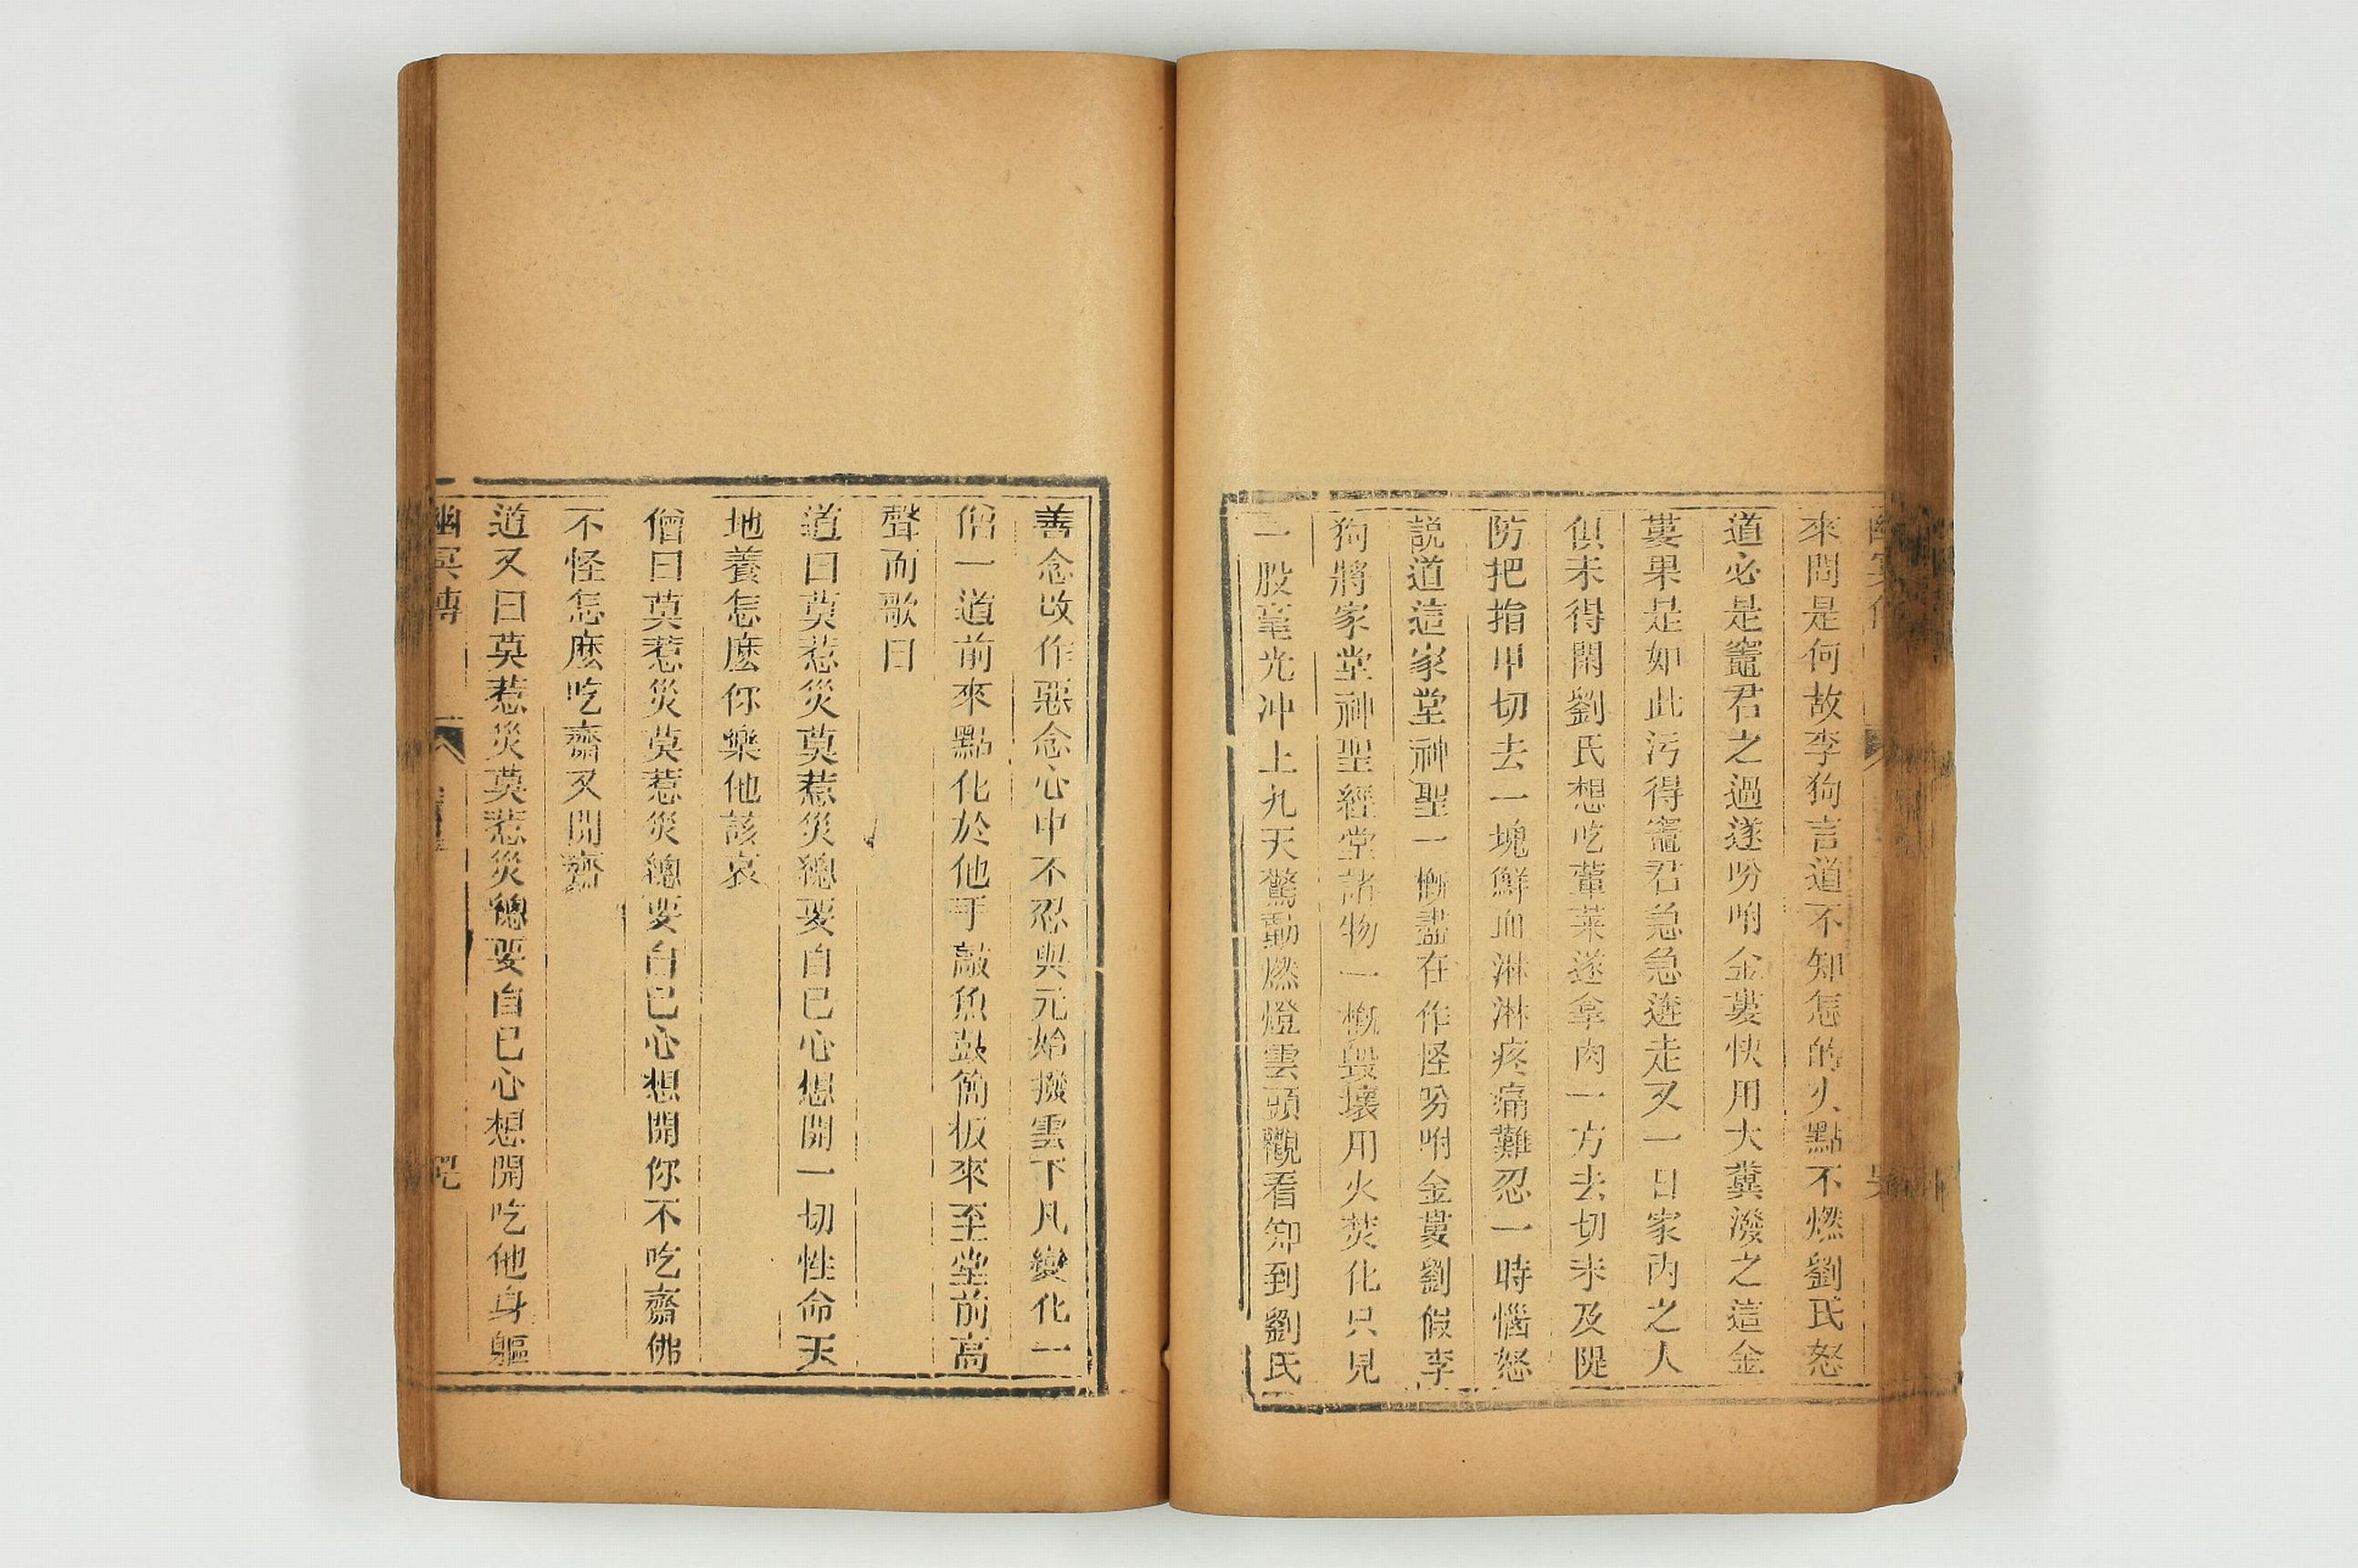 來問是何故李狗言道不知怎的火點不燃劉氏怒
道必是竈君之過遂吩咐金蔞快用大糞潑之這金
蔞果是如此污得竈君急急逃走又一日家内之人
俱未得閑劉氏想吃葷菜遂拿肉一方去切未及隄
防把指甲切去一塊鮮血淋淋疼痛難忍一時惱怒
説道這家堂神聖一概盡在作怪吩咐金蔞劉假李
狗將家堂神聖經堂諸物一概毀壞用火焚化只見
一股毫光冲上九天驚動燃燈雲頭觀看知到劉氏
善念改作惡念心中不忍與元始撥雲下凡變化一
僧一道前來點化於他手敲魚鼓簡板來至堂前高
聲而歌曰
道曰莫惹災莫惹災總要自己心想開一切性命天
地養怎麼你樂他該哀
僧曰莫惹災莫惹災總要自己心想開你不吃齋佛
不怪怎麼吃齋又開齋
道又曰莫惹災莫惹災總要自己心想開吃他身軀
幽冥傳